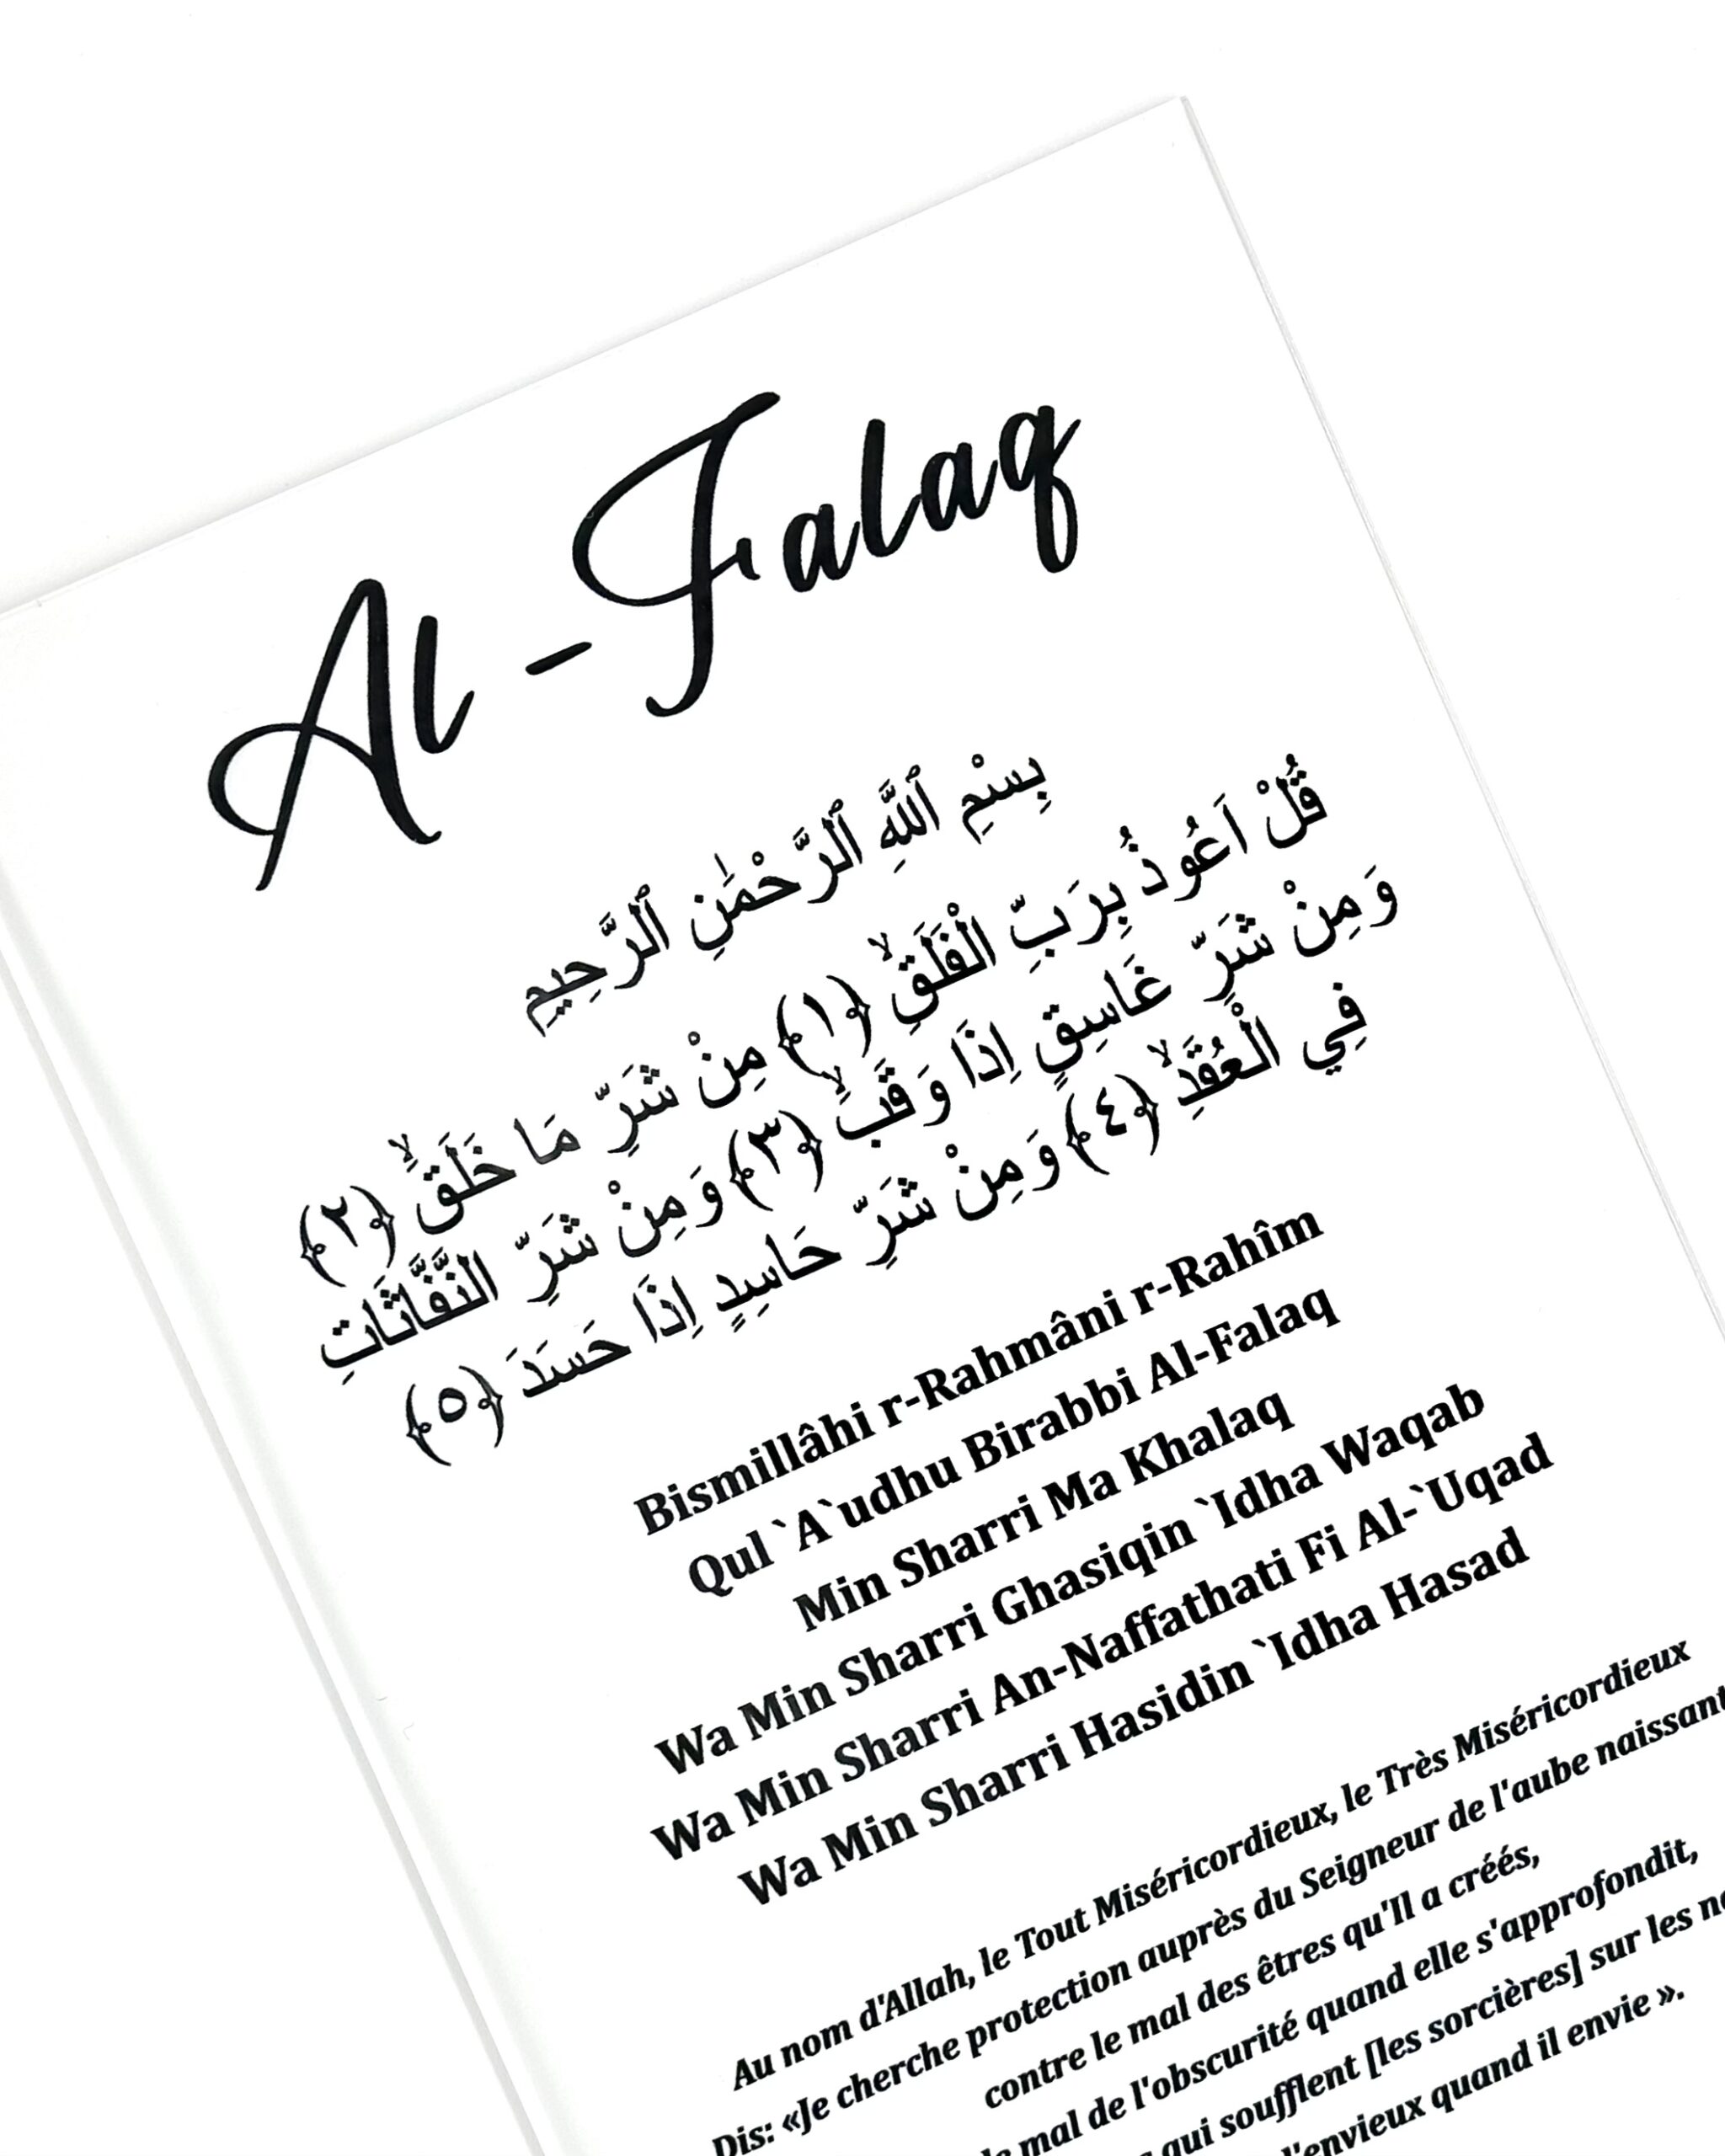 Al-Falaq
بِسْمِ ٱللَّهِ ٱلرَّحْمَٰنِ ٱلرَّحِيمِ
قُلْ اَعُوذُ بِرَبِّ الْفَلَقِۙ ﴿١﴾ مِنْ شَرِّ مَا خَلَقَۙ ﴿٢﴾
وَمِنْ شَرِّ غَاسِقٍ اِذَا وَقَبَۙ ﴿٣﴾ وَمِنْ شَرِّ النَّفَّاثَاتِ
فِي الْعُقَدِۙ ﴿٤﴾ وَمِنْ شَرِّ حَاسِدٍ اِذَا حَسَدَ ﴿٥﴾
Bismillâhi r-Rahmâni r-Rahîm
Qul `A`udhu Birabbi Al-Falaq
Min Sharri Ma Khalaq
Wa Min Sharri Ghasiqin `Idha Waqab
Wa Min Sharri An-Naffathati Fi Al-`Uqad
Wa Min Sharri Hasidin `Idha Hasad
Au nom d'Allah, le Tout Miséricordieux, le Très Miséricordieux
Dis: «Je cherche protection auprès du Seigneur de l'aube naissant
contre le mal des êtres qu'Il a créés,
mal de l'obscurité quand elle s'approfondit,
qui soufflent [les sorcières] sur les
l'envieux quand il envie ».